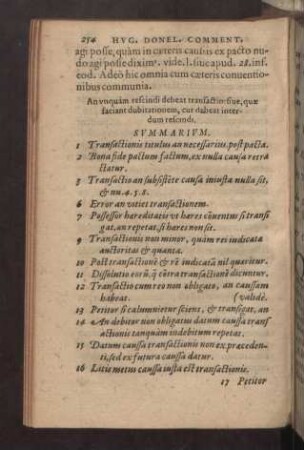 254 HVG. DONEL. COMMENT.
agi posse, quàm in cæteris causis ex pacto nu-
do agi posse diximꝰ. vide. l. siue apud. 28. inf.
eod. Adeò hic omnia cum cæteris conuentio-
nibus communia.
An vnquàm rescindi debeat transactio: siue, quæ
faciant dubitationem, cur debeat inter-
dum rescindi.
SVMMARIVM.
1 Transactionis titulus an necessarius, post pacta.
2 Bona fide pactum factum, ex nulla causa retra
ctatur.
3 Transactio an subsistẽte causa iniusta nulla sit,
& nu. 4. 5. 8.
6 Error an vitiet transactionem.
7 Possessor hæreditatis vt hæres cõuentus si transi
gat, an repetat, si hæres non sit.
9 Transactionis non minor, quàm rei iudicatæ
auctoritas & quanta.
10 Post transactionẽ & rẽ iudicatã nil quæritur.
11 Dissolutio eorũ, q̃ cõtra transactionẽ dicuntur.
12 Transactio cum reo non obligato, an caussam
habeat. (validè.
13 Petitor si calumnietur sciens, & transigat, an
14 An debitor non obligatus datum caussa trans
actionis tanquàm indebitum repetat.
15 Datum caussa transactionis non ex præceden-
ti, sed ex futura caussa datur.
16 Litis metus caussa iusta est transactionis.
17 Petitor